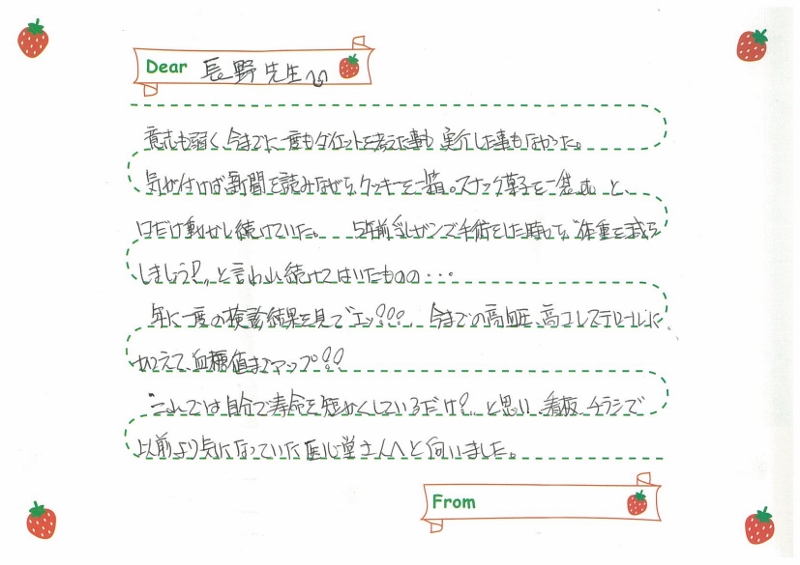 Dear 長野先生へ
意志も弱く、今までに一度もダイエットを考えた事も、実行した事もなかった。
気が付けば新聞を読みながら、クッキーを一箱。スナック菓子を一袋 と、
口だけ動かし続けていた。 5年前乳ガンで手術をした時も、"体重を減ら
しましょう!"と言われ続けてはいたものの・・・
年に一度の検診結果を見て"エッ!!! 今までの高血圧、高コレステロールに
加えて、血糖値までアップ!!
"これでは自分で寿命を短かくしているだけ?"と思い、看板、チラシで
以前より気になっていた医心堂さんへと向いました。
From